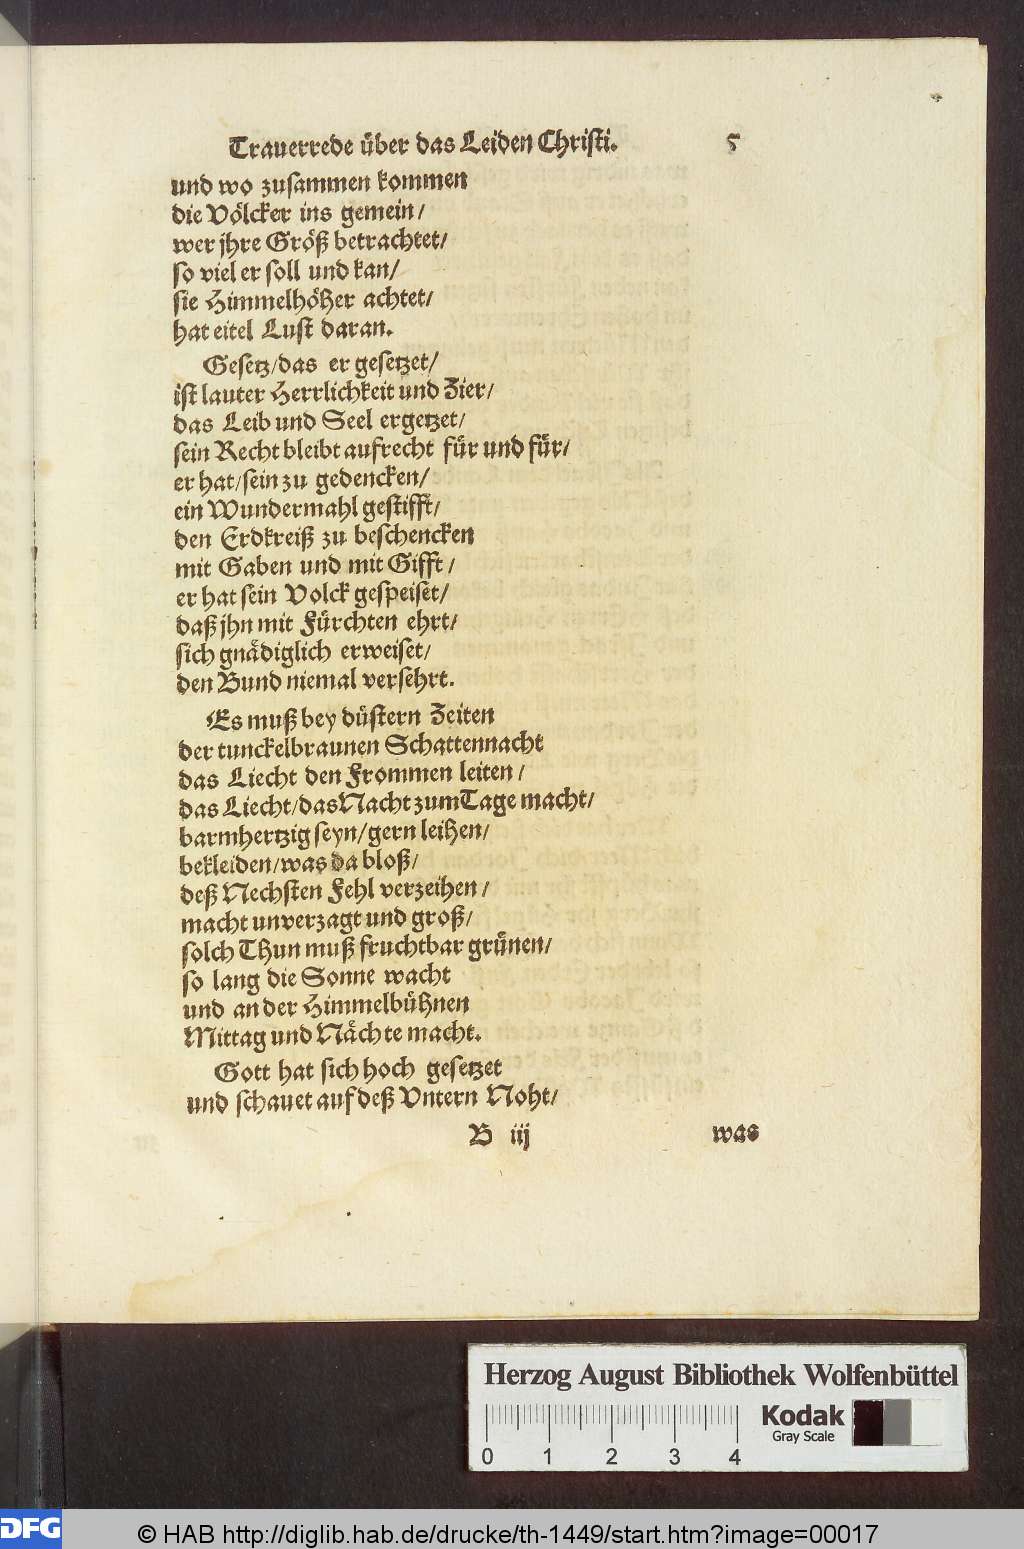 Trauerrede über das Leiden Christi. 5
und wo zusammen kommen
die Völcker ins gemein/
wer jhre Größ betrachtet/
so viel er soll und kan/
sie Himmelhöher achtet/
hat eitel Lust daran.
Gesetz/das er gesetzet/
ist lauter Herrlichkeit und Zier/
das Leib und Seel ergetzet/
sein Recht bleibt aufrecht für und für/
er hat/sein zu gedencken/
ein Wundermahl gestifft/
den Erdkreiß zu beschencken
mit Gaben und mit Gifft/
er hat sein Volck gespeiset/
daß jhn mit Fürchten ehrt/
sich gnädiglich erweiset/
den Bund niemal versehrt.
Es muß bey düstern Zeiten
der tunckelbraunen Schattennacht
das Liecht den Frommen leiten/
das Liecht/das Nacht zum Tage macht/
barmhertzig seyn/gern leihen/
bekleiden/was da bloß/
deß Nechsten Fehl verzeihen/
macht unverzagt und groß/
solch Thun muß fruchtbar grünen/
so lang die Sonne wacht
und an der Himmelbühnen
Mittag und Nächte macht.
Gott hat sich hoch gesetzet
und schauet auf deß Vntern Noht/
B iij was
Herzog August Bibliothek Wolfenbüttel
0 1 2 3 4
Kodak
Gray Scale
DFG
© HAB http://diglib.hab.de/drucke/th-1449/start.htm?image=00017